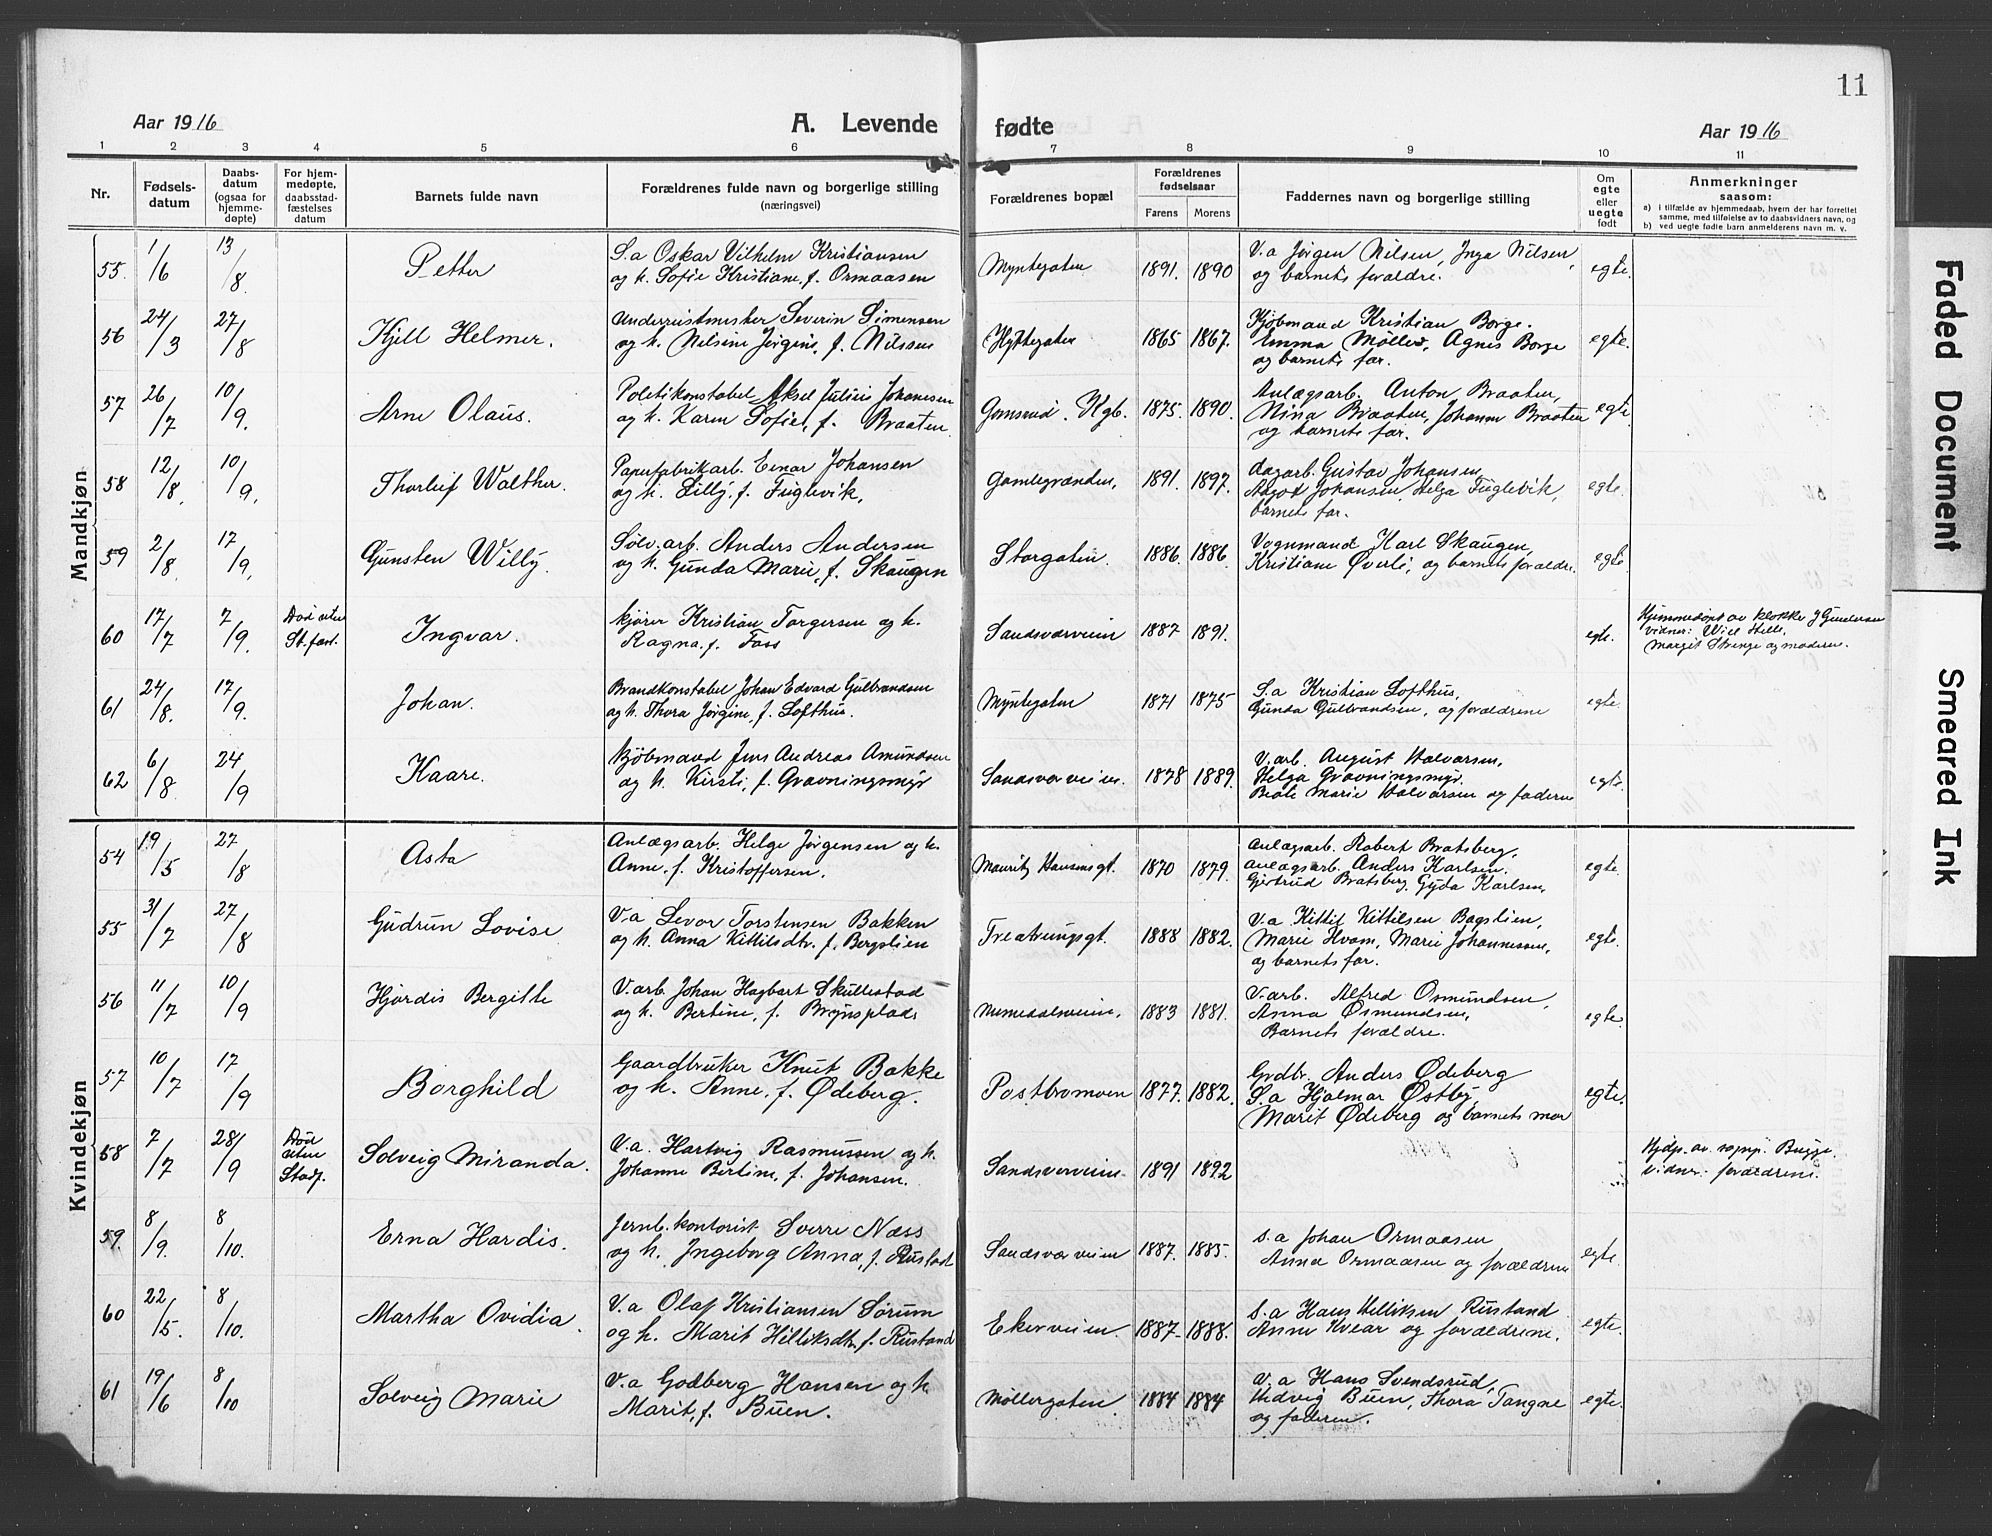 11
Aar 1916 A. Levende fødte Aar 1916
1 2 3 4 5 6 7 8 9 10 11
Nr.
Fødsels-
datum
Daabs-
datum
(ogsaa for
hjemme-
døpte)
For hjem-
medøpte,
daabsstad-
fæstelses
datum
Barnets fulde navn
Forældrenes fulde navn og borgerlige stilling
(næringsvei)
Forældrenes bopæl
Forældrenes
fødselsaar
Farens Morens
Faddernes navn og borgerlige stilling
Om
egte
eller
uegte
født
Anmerkninger
saasom:
a) i tilfælde av hjemmedaab, hvem der har forrettet
samme, med tilføielse av to daabsvidners navn, og
b) ved uegte fødte barn anmelderens navn m. v.
Mandkjøn
55. 1/6 13/8. Petter
S.a Oskar Vilhelm Kristiansen
og h. Sofie Kristiane, f. Ormaasen
Myntegaten 1891. 1890
V.a Jørgen Nilsen, Inga Nilsen,
og barnets forældre.
egte.
56 24/3 27/8 Kjell Helmer.
Underrustmester Severin Simensen
og h. Nilsine Jørgine, f. Nilsen
Hyttegaten 1865 1867.
Kjøbmand Kristian Borge.
Emma Møller, Agnes Borge
og barnets far.
egte.
57 26/7 10/9. Arne Olaus.
Politikonstabel Aksel Julius Johansen
og h. Karen Sofie, f. Braaten
Gomsrud. Kgb. 1875. 1890.
Anlægsarb. Anton Braaten,
Nina Braaten, Johanne Braaten
og barnets far.
egte
58 12/8. 10/9. Thorleif Walther.
Papirfabrikarb. Einar Johansen
og h. Lilly, f. Fuglevik,
Gamlegrænden, 1891. 1897.
dagarb. Gustav Johansen,
Aagot Johansen, Helga Fuglevik,
barnets far.
egte.
59 2/8. 17/9. Gunsten Willy.
Sølv.arb. Anders Andersen
og h. Gunda Marie, f. Skaugen
Storgaten. 1886. 1886
Vognmand Karl Skaugen,
Kristiane Øverli, og barnets forældre.
egte.
60 17/7 7/9. Død uten
St.fæst.
Ingvar.
kjører Kristian Torgersen og h.
Ragna, f. Foss
Sandsværveien 1887 1891.
egte.
Hjemmedøpt av klokker J Gundersen
vidner: Wiel Helle,
Margit Strenge og moderen.
61 24/8. 17/9. Johan.
Brandkonstabel Johan Edvard Gulbrandsen
og h. Thora Jørgine, f. Lofthus.
Myntegaten 1871 1875
S.a Kristian Lofthus,
Gunda Gulbrandsen, og forældrene
egte.
62 6/8 24/9 Kaare.
Kjøbmand Jens Andreas Amundsen
og h. Kirsti, f. Gravningsmyr
Sandsværveien. 1878 1889.
V.arb. August Halvorsen,
Helga Gravningsmyr.
Beate Marie Halvorsen og faderen
egte.
Kvindekjøn
54 19/5 27/8 Asta
Anlægsarb. Helge Jørgensen og h.
Anne, f. Kristoffersen.
Mauritz Hansensgt. 1870 1879.
Anlægsarb. Robert Bratsberg,
Anlægsarb. Anders Karlsen.
Gjertrud Bratsberg, Gyda Karlsen,
egte.
55 31/7 27/8 Gudrun Lovise.
V.a Levor Torstensen Bakken
og h. Anna Kittilsdtr. f. Bergslien
Treatrungsgt. 1888 1882.
V.a Kittil Kittilsen Bagslien,
Marie Hvam, Marie Johannessen,
og barnets far.
egte.
56 11/7 10/9 Hjørdis Bergitte
V.arb. Johan Hagbart Skullestad
og h. Bertine, f. Brynsplads
Numedalsveien, 1883 1881.
V.arb. Alfred Osmundsen,
Anna Osmundsen,
Barnets forældre.
egte.
57 10/7 17/9 Borghild
Gaardbruker Knut Bakke
og h. Anne, f. Ødeberg.
Postbromoen 1877. 1882.
Grdbr. Anders Ødeberg
S.a Hjalmar Østby,
Marit Ødeberg og barnets mor
egte.
58 7/7 28/9 Død
uten
Stadf.
Solveig Miranda.
V.a. Hartvig Rasmussen og h.
Johanne Bertine, f. Johansen.
Sandsverveien 1891 1892
Hjdp. av sogp. Bugge.
vidner: forældrene.
59. 8/9. 8/10. Erna Hardis.
Jernb. kontorist Sverre Næss
og h. Ingeborg Anna, f. Rustad
Sandsværveien 1887. 1885.
S.a Johan Ormaasen
Anna Ormaasen og forældrene
egte.
60 22/5. 8/10. Martha Ovidia.
V.a Olaf Kristiansen Sørum
og h. Marit Helliksdtr. f. Rustand
Ekerveien. 1887- 1888.
S.a Hans Helliksen Rustand
Anne Kvear og forældrene.
egte.
61 19/6 8/10 Solveig Marie
V.a Godberg Hansen og h.
Marit, f. Buen.
Møllergaten 1884 1884
V.a Hans Svendsrud,
Hedvig Buen, Thora Tangne
og faderen.
egte.
Faded Document
Smeared Ink